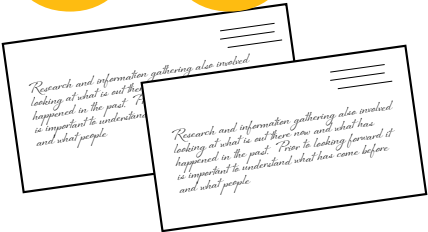 Research and information gathering also involved
looking at what is out the
happened in the past. P
is important to understand
and what people
Research and information gathering also involved
looking at what is out there now and what has
happened in the past. Prior to looking forward it
is important to understand what has come before
and what people